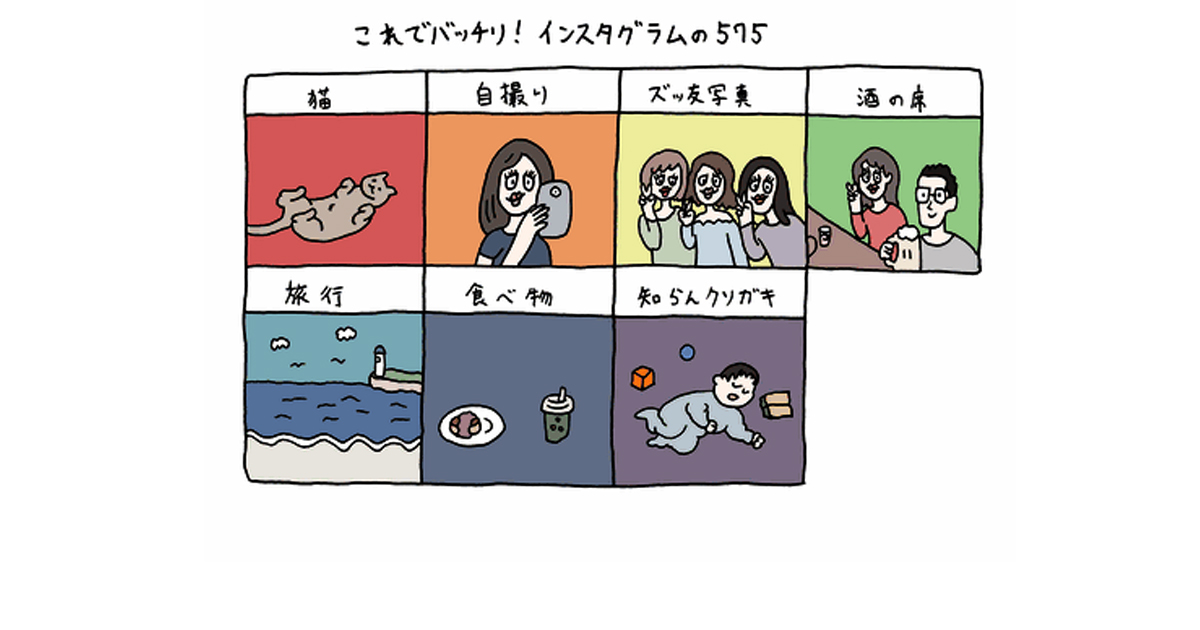 これでバッチリ！インスタグラムの575
猫
自撮り
ズッ友写真
酒の席
旅行
食べ物
知らんクソガキ